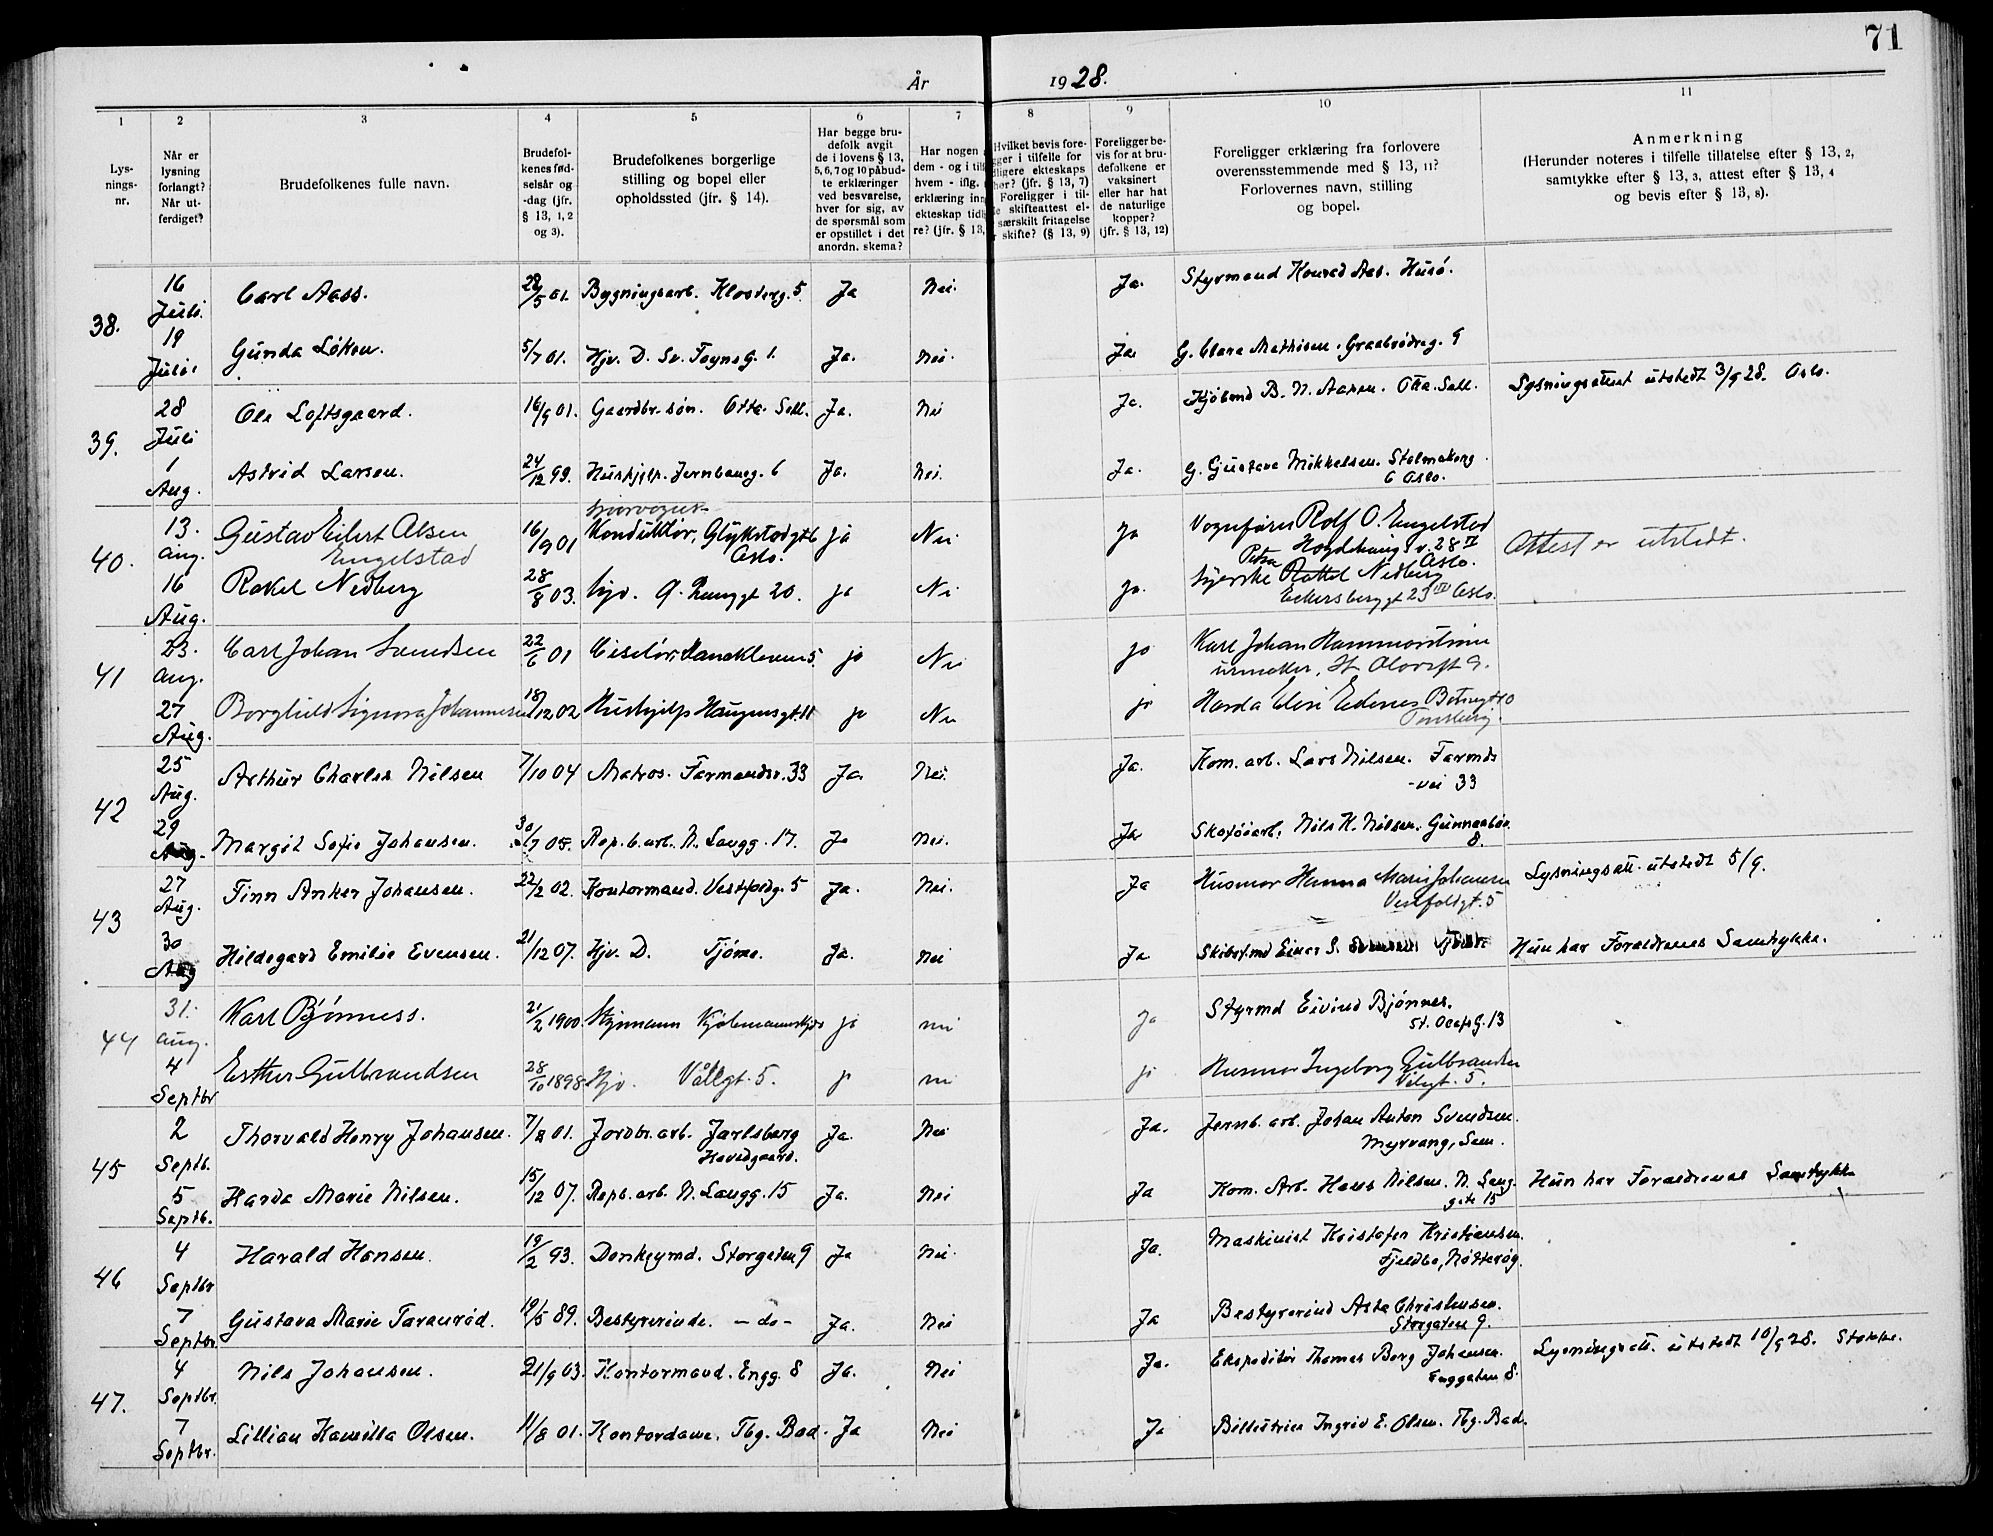 71
År 1928.
1 2 3 4 5 6 7 8 9 10 11
Lys-
nings-
nr.
Når er
lysning
forlangt?
Når ut-
ferdiget?
Brudefolkenes fulle navn.
Brudefol-
kenes fød-
selsår og
-dag (jfr.
§ 13, 1, 2
og 3).
Brudefolkenes borgerlige
stilling og bopel eller
opholdssted (jfr. § 14).
Har begge bru-
defolk avgit
de i lovens § 13,
5, 6, 7 og 10 påbud-
te erklæringer
ved besvarelse,
hver for sig, av
de spørsmål som
er opstillet i det
anordn. skema?
Har nogen
dem - og i til
hvem - iflg.
erklæring inn
ekteskap tidl
re? (jfr. § 13,
Hvilket bevis fore-
gger i tilfelle for
dligere ekteskaps
hør? (jfr. § 13, 7)
Foreligger i til-
e skifteattest el-
særskilt fritagelse
r skifte? (§ 13, 9)
Foreligger be-
vis for at bru-
defolkene er
vaksinert
eller har hat
de naturlige
kopper?
(jfr. § 13, 12)
Foreligger erklæring fra forlovere
overensstemmende med § 13, 11?
Forlovernes navn, stilling
og bopel.
Anmerkning
(Herunder noteres i tilfelle tillatelse efter § 13, 2,
samtykke efter § 13, 3, attest efter § 13, 4
og bevis efter § 13, 8).
38. 16 Juli. Carl Aass. 28/5 01. Bygningsarb. Klosterg. 5. Ja Nei. Ja. Styrmand Konrad Aas. Husö.
19 Juli. Gunda Löken. 5/7 01. Hjv. D. Sv. Foynsg. 1. Ja. Nei. Ja. G. Clara Mathisen. Graabrödreg. 9
39. 28 Juli Ole Loftsgaard. 16/9 01. Gaardbr. søn. Otta. Sell. Ja. Nei Ja. Kjöbmd B. N. Aasen. Otta. Sell. Lysningsattest utstedt 3/9 28. Oslo.
1 Aug. Astrid Larsen. 24/12 99. Hushjelp. Jernbaneg. 6 Ja. Nei. Ja. G. Gustava Mikkelsen. Stolmakerg.
6 Oslo.
40. 13. aug. Gustav Eilert Olsen
Engelstad 16/9 01 Sporvogns-
Konduktör, Glykstadgt 6
Oslo. ja Nei ja Vognfører Rolf O. Engelstad
28 IV
Oslo. Attest er utstedt.
16 Aug. Rakel Nedberg 28/8 03. Hjv. Q. Ramggt 20. ja Nei ja. Syerske Petra Nedberg
Eckersberggt 23 IV Oslo.
41 23. aug. Carl Johan Svendsen 22/6 01 Ciselör, 5. ja Nei ja Karl Johan Hammerström
urmaker, St Olavsgt 9.
27 Aug. Borghild Signora Johannesen 18/12 02 Hushjelp Haugensgt. 11 ja Nei ja
Tønsberg.
42 25 Aug. Arthur Charles Nilsen 7/10 04 Matros. Farmandsv. 33 Ja. Nei. Ja. Kom. arb. Lars Nilsen. Farmds
-vei 33
29 Aug. Margit Sofie Johansen. 30/7 05. Rep. b. arb. N. Langg. 17. Ja Nei. Ja Skotöiarb. Nils K. Nilsen. Gunnarsbö
8.
43 27 Aug. Finn Anker Johansen. 22/2 02. Kontormand. Vestfoldg. 5 Ja. Nei. Ja Husmor Hanna Marie Johansen
Vestfoldgt. 5 Lysningsatt. utstedt 5/9.
30 Aug Hildegard Emilie Evensen. 21/12 07. Hjv. D. Tjöme. Ja. Nei Ja Skibsf.md Einar S. Hun har Forældrenes Samtykke.
44 31. aug. Karl Bjönness. 21/2 1900. Styrmann ja nei ja Styrmd Eivind Bjönnes.
St. Olafs G. 13
4 Septbr Esther Gulbrandsen 28/10 1898 Hjv. Vållgt. 5. ja nei ja Husmor Ingeborg Gulbrandsen
Vålgt. 5.
45 2 Septb. Thorvald Henry Johansen. 7/8 01. Jordbr. arb. Jarlsberg
Hovedgaard. Ja. Nei Ja. Jernb. arb. Johan Anton Svendsen.
Myrvang, Sem.
5 Septb. Harda Marie Nilsen. 15/12 07. Repb. arb. N. Langg. 15 Ja. Nei Ja Kom. Arb. Hans Nilsen. N. Lang-
gate 15 Hun har Forældrenes Samtykke
46 4 Septbr Harald Hansen. 19/2 93. Donkeymd. Storgaten 9 Ja Nei. Ja. Maskinist Kristofer Kristiansen.
Fjeldbo, Nötterög.
7 Septbr. Gustava Marie Taranröd. 19/5 89. Bestyrerinde. -do- Ja. Nei Ja Bestyrerind Asta Christensen.
Storgaten 9.
47. 4 Septbr. Nils Johansen. 21/9 03. Kontormand. Engg. 8 Ja. Nei Ja. Ekspeditör Thomas Berg Johansen.
Enggaten 8. Lysningsatt. utstedt 10/9 28. Stokke.
7 Septbr. Lillian Kamilla Olsen. 11/8 01. Kontordame. Tbg. Bad. Ja Nei Ja Ingrid E. Olsen. Tbg. Bad.